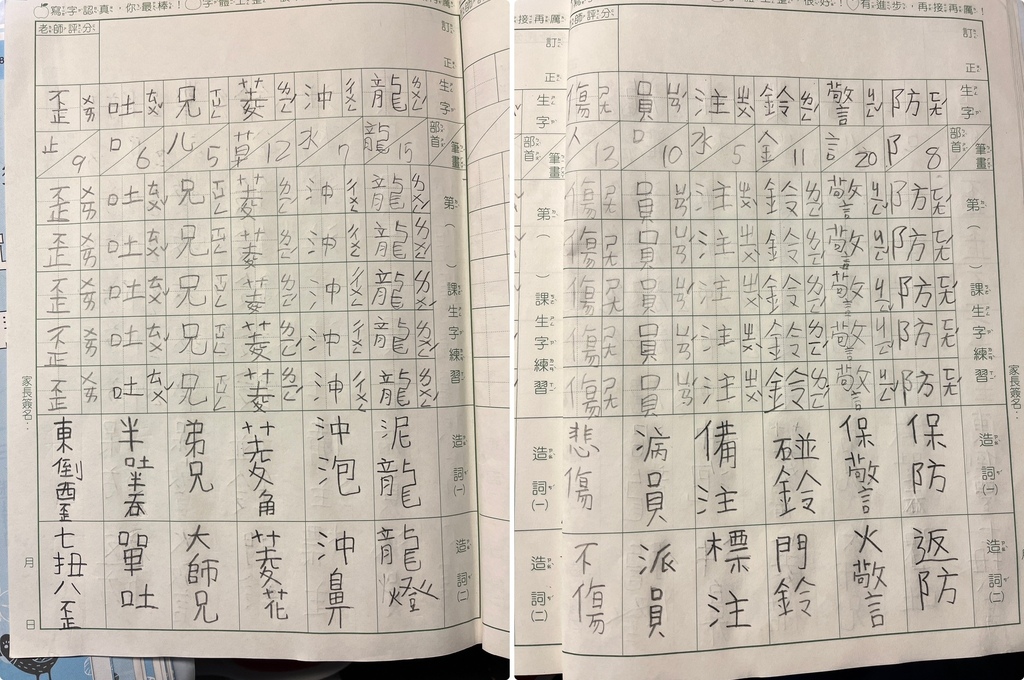 寫字認真,你最棒!
老師評分
訂正
生字
部首 筆畫
第( )課生字練習
造詞(一)
造詞(二)
龍 ㄌㄨㄥˊ
龍 15
龍 ㄌㄨㄥˊ
龍 ㄌㄨㄥˊ
龍 ㄌㄨㄥˊ
龍 ㄌㄨㄥˊ
龍 ㄌㄨㄥˊ
泥龍
龍燈
沖 ㄔㄨㄥ
水 7
沖 ㄔㄨㄥ
沖 ㄔㄨㄥ
沖 ㄔㄨㄥ
沖 ㄔㄨㄥ
沖 ㄔㄨㄥ
沖泡
沖鼻
菱 ㄌㄧㄥˊ
草 12
菱 ㄌㄧㄥˊ
菱 ㄌㄧㄥˊ
菱 ㄌㄧㄥˊ
菱 ㄌㄧㄥˊ
菱 ㄌㄧㄥˊ
菱角
菱花
兄 ㄒㄩㄥ
儿 5
兄 ㄒㄩㄥ
兄 ㄒㄩㄥ
兄 ㄒㄩㄥ
兄 ㄒㄩㄥ
兄 ㄒㄩㄥ
弟兄
大師兄
吐 ㄊㄨˇ
口 6
吐 ㄊㄨˇ
吐 ㄊㄨˇ
吐 ㄊㄨˇ
吐 ㄊㄨˇ
吐 ㄊㄨˇ
半吐半吞
單吐
歪 ㄨㄞ
止 9
歪 ㄨㄞ
歪 ㄨㄞ
歪 ㄨㄞ
歪 ㄨㄞ
歪 ㄨㄞ
東倒西歪
七扭八歪
家長簽名:
月 日
很好!
有進步,再接再厲!
評分
訂正
生字
部首 筆畫
第( )課生字練習
造詞(一)
造詞(二)
家長簽名:
防 ㄈㄤˊ
阝 8
防 ㄈㄤˊ
防 ㄈㄤˊ
防 ㄈㄤˊ
防 ㄈㄤˊ
防 ㄈㄤˊ
保防
返防
警 ㄐㄧㄥˇ
言 20
警 ㄐㄧㄥˇ
警 ㄐㄧㄥˇ
警 ㄐㄧㄥˇ
警 ㄐㄧㄥˇ
警 ㄐㄧㄥˇ
保警
火警
鈴 ㄌㄧㄥˊ
金 11
鈴 ㄌㄧㄥˊ
鈴 ㄌㄧㄥˊ
鈴 ㄌㄧㄥˊ
鈴 ㄌㄧㄥˊ
鈴 ㄌㄧㄥˊ
碰鈴
門鈴
注 ㄓㄨˋ
水 5
注 ㄓㄨˋ
注 ㄓㄨˋ
注 ㄓㄨˋ
注 ㄓㄨˋ
注 ㄓㄨˋ
備注
標注
員 ㄩㄢˊ
口 10
員 ㄩㄢˊ
員 ㄩㄢˊ
員 ㄩㄢˊ
員 ㄩㄢˊ
員 ㄩㄢˊ
病員
派員
傷 ㄕㄤ
人 13
傷 ㄕㄤ
傷 ㄕㄤ
傷 ㄕㄤ
傷 ㄕㄤ
傷 ㄕㄤ
悲傷
不傷
接再厲!
訂正
生字
部首 筆畫
第( )課生字練習
造詞(一)
造詞(二)